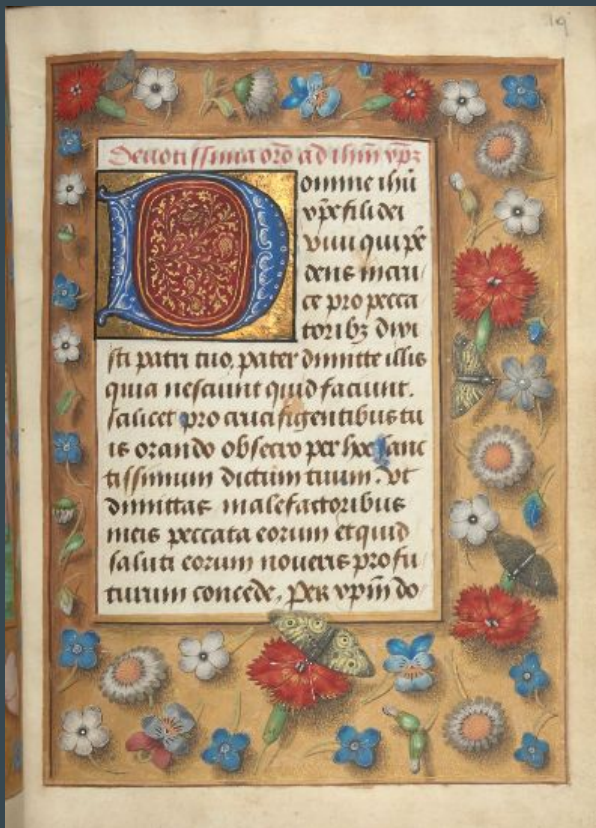 19
Deuotissima oro ad ihm xpm
Domine ihu
xpe fili dei
viui qui pe
dens in cru
ce pro pecca
torib; dixi
sti patri tuo. pater dimitte illis
quia nesciunt quid faciunt.
scilicet pro cruci figentibus tu
is orando obsecro per hoc sanc
tissimum dictum tuum. vt
dimittas malefactoribus
meis peccata eorum et quid
saluti eorum noueris profu
turum concede. Per xpm do